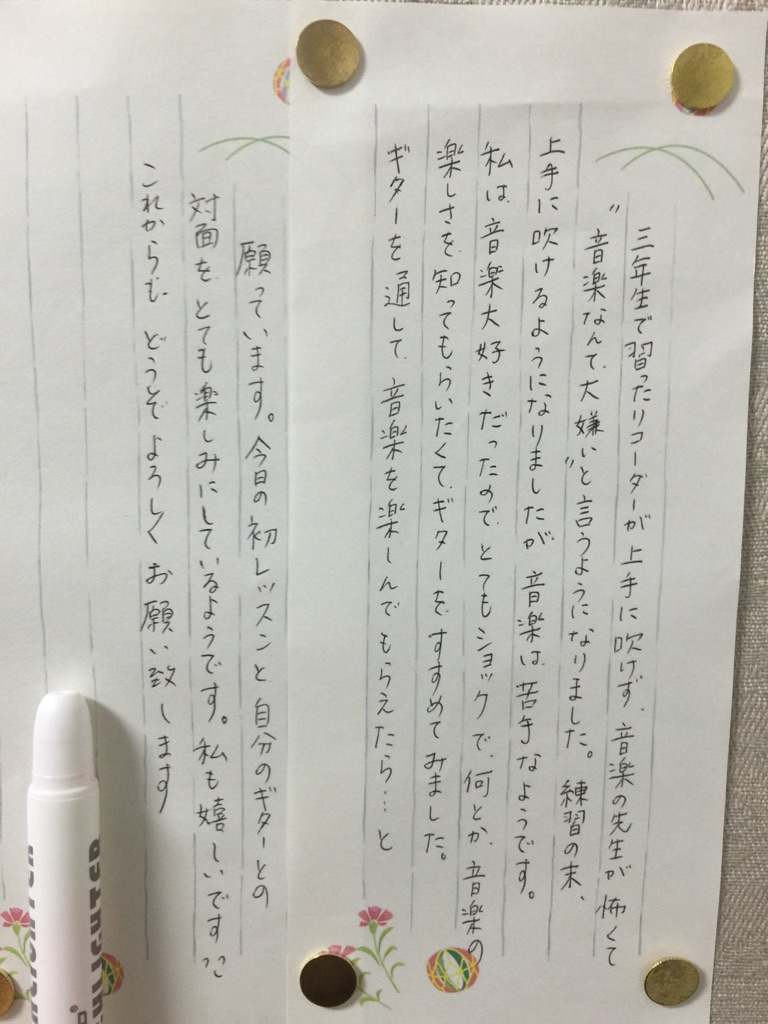 三年生で習ったリコーダーが上手に吹けず、音楽の先生が怖くて
〝音楽なんて、大嫌い〟と言うようになりました。練習の末、
上手に吹けるようになりましたが、音楽は苦手なようです。
私は、音楽大好きだったので、とてもショックで、何とか、音楽の
楽しさを、知ってもらいたくて、ギターを、すすめてみました。
ギターを通して、音楽を楽しんでもらえたら…と
願っています。今日の初レッスンと自分のギターとの
対面を、とても楽しみにしているようです。私も嬉しいです
これからも、どうぞよろしくお願い致します